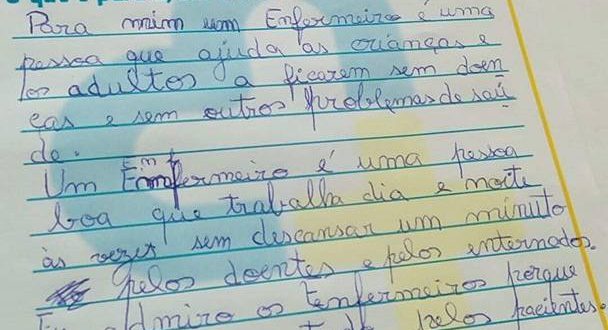 Para mim um Enfermeiro é uma
pessoa que ajuda as crianças e
os adultos a ficarem sem doen
ças e sem outros problemas de saú
de.
Um Enfermeiro é uma pessoa
boa que trabalha dia e noite
às vezes sem descansar um minuto
pelos doentes e pelos internados.
Eu admiro os Enfermeiros porque
pelos pacientes.